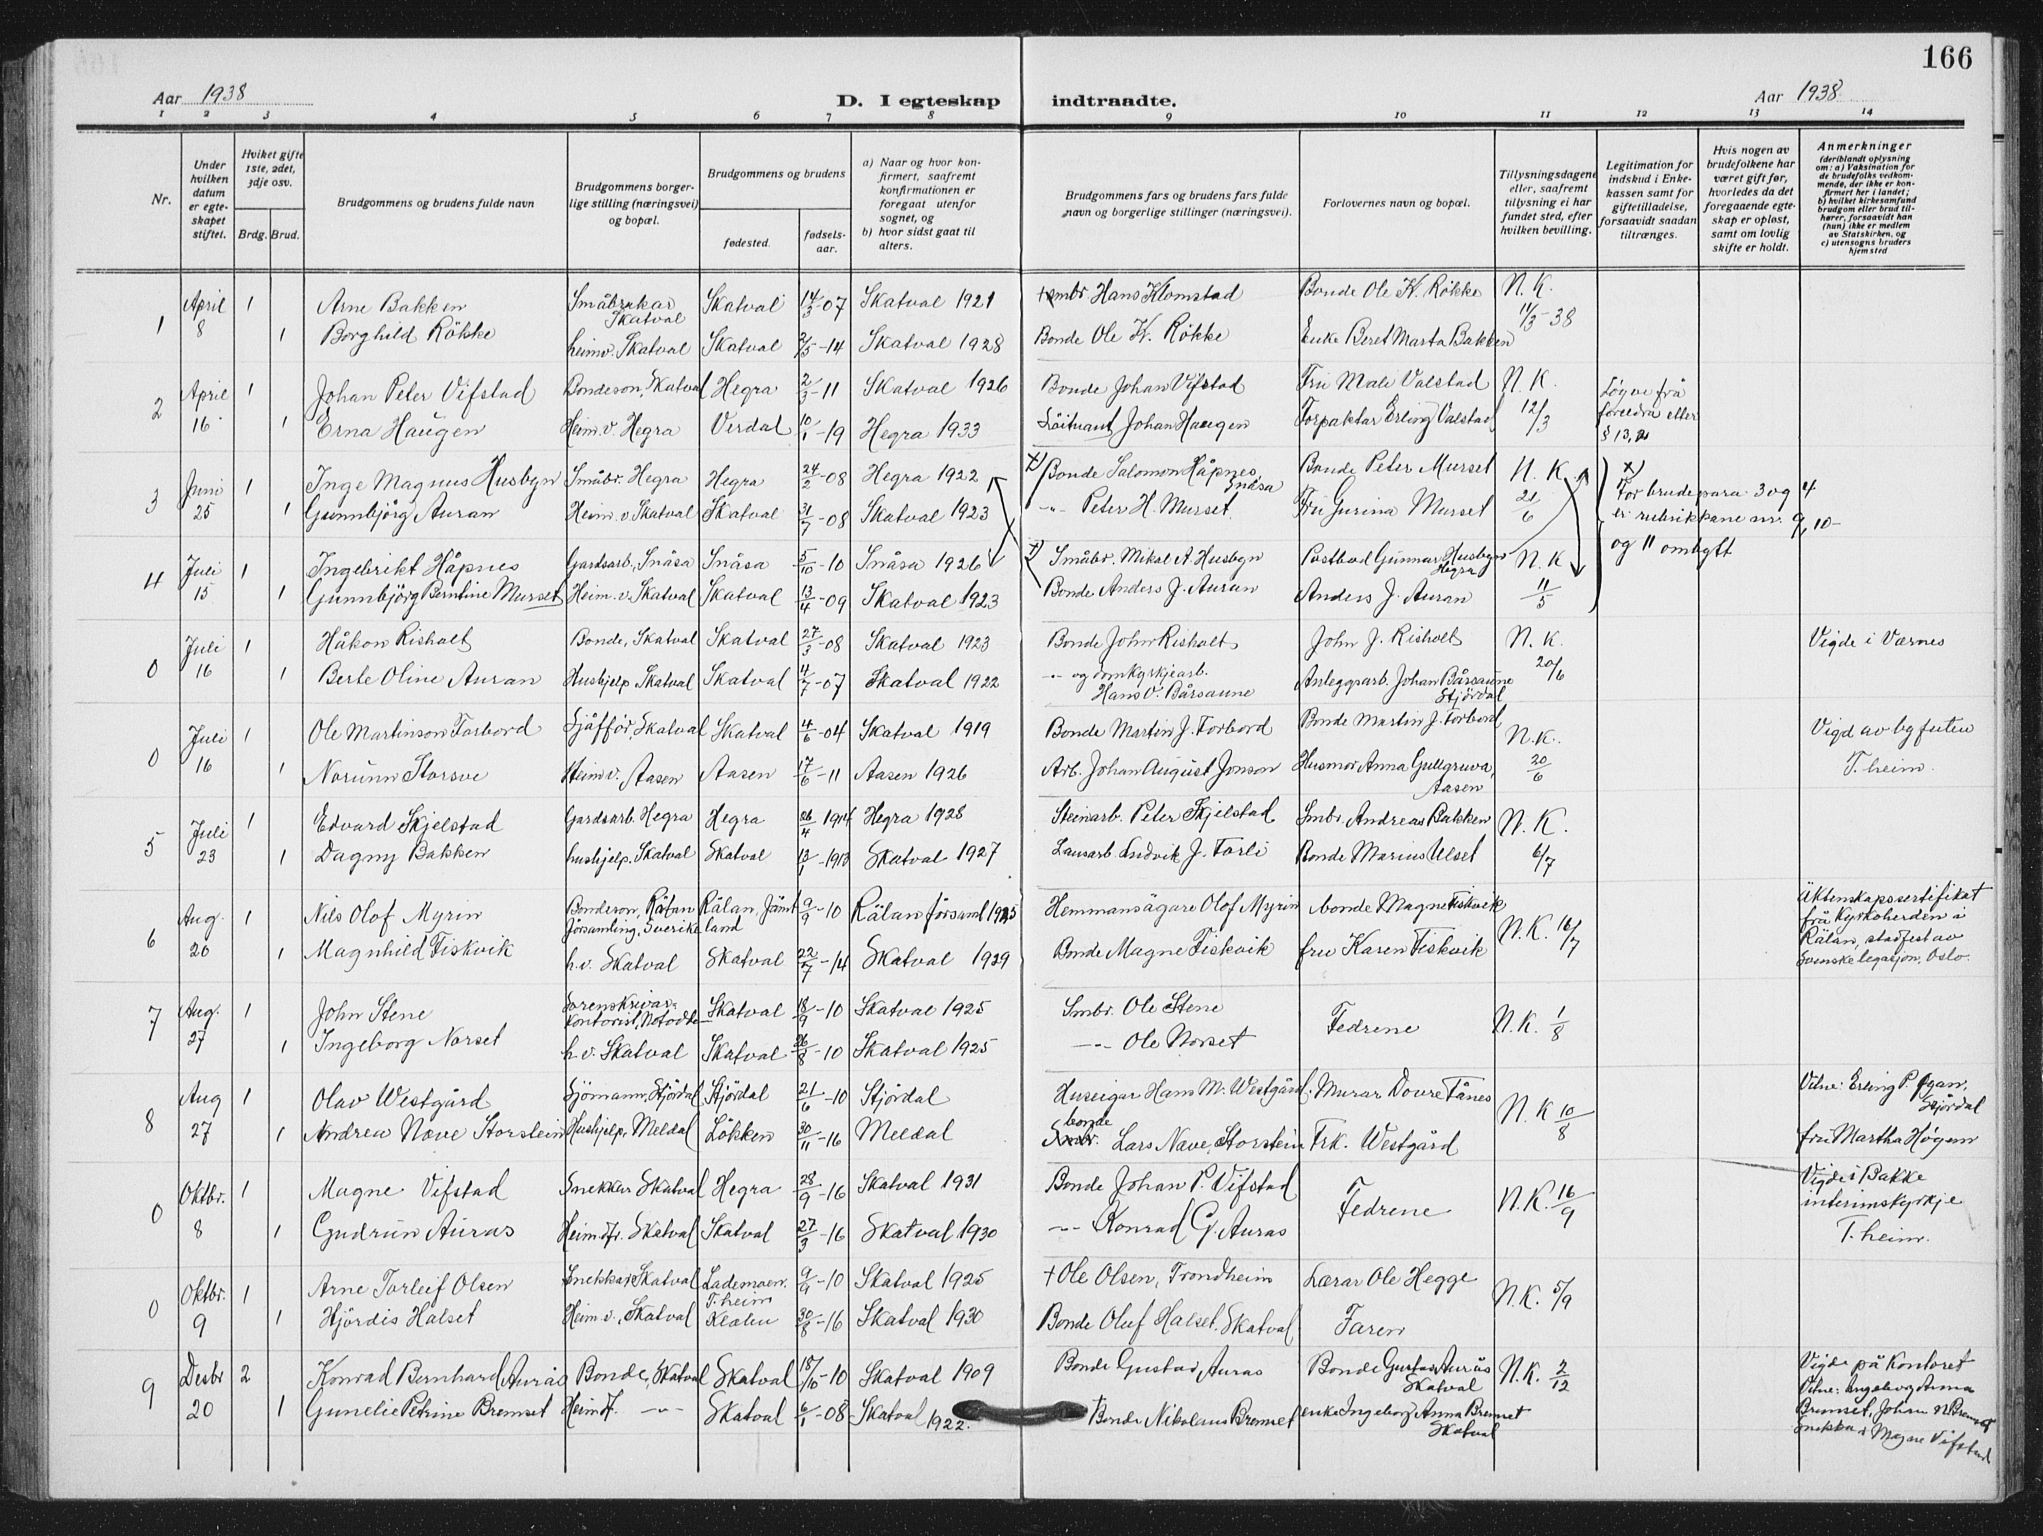 166
Aar 1938 D. I egteskap indtraadte. Aar 1938
1 2 3 4 5 6 7 8 9 10 11 12 13 14
Nr.
Under hvilken datum er egte-skapet stiftet.
Hvilket gifte 1ste, 2det, 3dje osv.
Brdg. Brud.
Brudgommens og brudens fulde navn
Brudgommens borger-lige stilling (næringsvei) og bopæl.
Brudgommens og brudens
fødested.
fødsels-aar.
a) Naar og hvor kon-firmert, saafremt konfirmationen er foregaat utenfor sognet, og
b) hvor sidst gaat til alters.
Brudgommens fars og brudens fars fulde navn og borgerlige stillinger (næringsvei).
Forlovernes navn og bopæl.
Tillysningsdagene eller, saafremt tillysning ei har fundet sted, efter hvilken bevilling.
Legitimation for indskud i Enke-kassen samt for giftetilladelse, forsaavidt saadan tiltrænges.
Hvis nogen av brudefolkene har været gift før, hvorledes da det foregaaende egte-skap er opløst, samt om lovlig skifte er holdt.
Anmerkninger (deriblandt oplysning om: a) Vaksination for de brudefolks vedkom-mende, der ikke er kon-firmert her i landet; b) hvilket kirkesamfund brudgom eller brud til-hører, forsaavidt han (hun) ikke er medlem av Statskirken, og c) utensogns bruders hjemsted
1 April 8 1 Arne Bakken Småbrukar Skatval Skatval 14/3-07 Skatval 1921 Hans Klomstad Bonde Ole K. Røkke N. K. 11/3-38
1 Borghild Røkke heimv. Skatval Skatval 2/5-14 Skatval 1928 Bonde Ole K. Røkke Enke Beret Marta Bakken
2 April 16 1 Johan Peter Vifstad Bondeson, Skatval Hegra 2/3-11 Skatval 1926 Bonde Johan Vifstad Fru Mali Valstad N. K. 12/3 Løyve frå foreldra eller § 13,2
1 Erna Haugen Heim.v. Hegra Verdal 10/1-19 Hegra 1933 Løitnant Johan Haugen Forpaktar Erling Valstad
3 Juni 25 1 Inge Magnus Husbyn Småbr. Hegra Hegra 24/2-08 Hegra 1922 x) Bonde Salomon Håpnes Snåsa Bonde Peter Murset N. K. 21/6
1 Gunnbjørg Auran Heim.v. Skatval Skatval 31/7-08 Skatval 1923 -"- Peter H. Murset. Fru Gurina Murset
x) For brudepara 3 og 4 er rubrikkane nr. 9, 10 og 11 ombytt
4 Juli 15 1 Ingebrikt Håpnes Gardsarb. Snåsa Snåsa 5/10-10 Snåsa 1926 x) Småbr. Mikal A. Husbyn Postbod Gunnar Husbyn Hegra N. K. 11/5
1 Gunnbjörg Berntine Murset Heim.v. Skatval Skatval 13/4-09 Skatval 1923 Bonde Anders J. Auran Anders J. Auran
0 Juli 16 1 Håkon Risholt Bonde, Skatval Skatval 27/3-08 Skatval 1923 Bonde John Risholt John J. Risholt N. K. 20/6 Vigde i Værnes
1 Berte Oline Auran Hushjelp Skatval Skatval 4/7-07 Skatval 1922 -"- og domkyrkjearb. Hans O. Bårsaune Anleggsarb. Johan Bårsaune Stjördal
0 Juli 16 1 Ole Martinson Forbord Sjåffør, Skatval Skatval 4/6-04 Skatval 1919 Bonde Martin J. Forbord Bonde Martin J. Forbord N.K. 20/6 Vigd av byfuten T.heim.
1 Norunn Storsve Heim v. Aasen Aasen 17/6-11 Aasen 1926 Arb. Johan August Jonson Husmor Anna Gullgruva, Aasen
5 Juli 23 1 Edvard Skjelstad Gardsarb. Hegra Hegra 26/4 1904 Hegra 1928 Steinarb. Peter Skjelstad Smbr. Andreas Bakken N. K. 6/7
1 Dagny Bakken hushjelp. Skatval Skatval 13/1-1913 Skatval 1927 Lausarb. Ludvik J. Forli Bonde Marius Ulset
6 Aug. 20 1 Nils Olof Myrin Bondeson, Rälan församling, Sverike Rälan, Jämtland 9/9-10 Rälan församl 1925 Hemmansägare Olof Myrin bonde Magne Fiskvik N.K. 16/7 Äktenskapssertifikat frå Kyrkoherden i Rälan, stadfest av Svenske legasjon, Oslo.
1 Magnhild Fiskvik h.v. Skatval Skatval 22/7-14 Skatval 1929 Bonde Magne Fiskvik fru Karen Fiskvik
7 Aug. 27 1 John Stene Sorenskrivar-kontorist, Notodden Skatval 18/9-10 Skatval 1925 Smbr. Ole Stene Fedrene N.K. 1/8
1 Ingeborg Norset h.v. Skatval Skatval 26/8-10 Skatval 1925 -"- Ole Norset
8 Aug 27 1 Olav Westgård Sjömann, Stjördal Stjördal 21/6-10 Stjördal Huseigar Hans M. Westgård. Murar Dovre Fånes N.K. 10/8 Vitne: Erling P. Stjördal
1 Andrea Næve Storstein Hushjelp, Meldal Løkken 30/11-16 Meldal bonde Smbr. Lars Nave, Storstein Frk. Westgård fru Martha Högem
0 Oktbr. 8 1 Magne Vifstad Snekkar Skatval Hegra 28/9-16 Skatval 1931 Bonde Johan P. Vifstad Fedrene N.K. 16/9 Vigde i Bakke interimskyrkje T.heim.
1 Gudrun Auras Heim.f. Skatval Skatval 27/3-16 Skatval 1930 -"- Konrad G. Auras
0 Oktbr. 9 1 Arne Torleif Olsen Snekkar, Skatval Lademoen. T.heim 9/9-10 Skatval 1925 + Ole Olsen, Trondheim Lærar Ole Hegge N.K. 5/9
1 Hjördis Halset Heim.v. Skatval Klæbu 30/8-16 Skatval 1930 Bonde Oluf Halset. Skatval Faren
9 Desbr 20 2 Konrad Bernhard Aurås Bonde, Skatval Skatval 18/10-10 Skatval 1909 Bonde Gustav Auras Bonde Gustav Aurås Skatval N.K. 2/12 Vigde på Kontoret Vitne: Ingeborg Anna Bremset, Johan N. Bremset Snekkar Magne Vifstad
1 Gunelie Petrine Bremset Heimf. -"- Skatval 6/1-08 Skatval 1922. + Bonde Nikolaus Bremset enke Ingeborg Anna Bremset Skatval